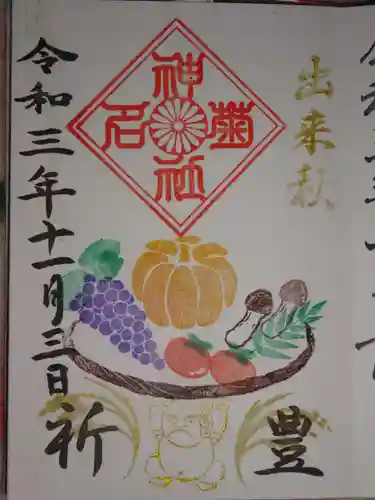 出来秋
菊名
神社
令和三年十一月三日
祈
豊